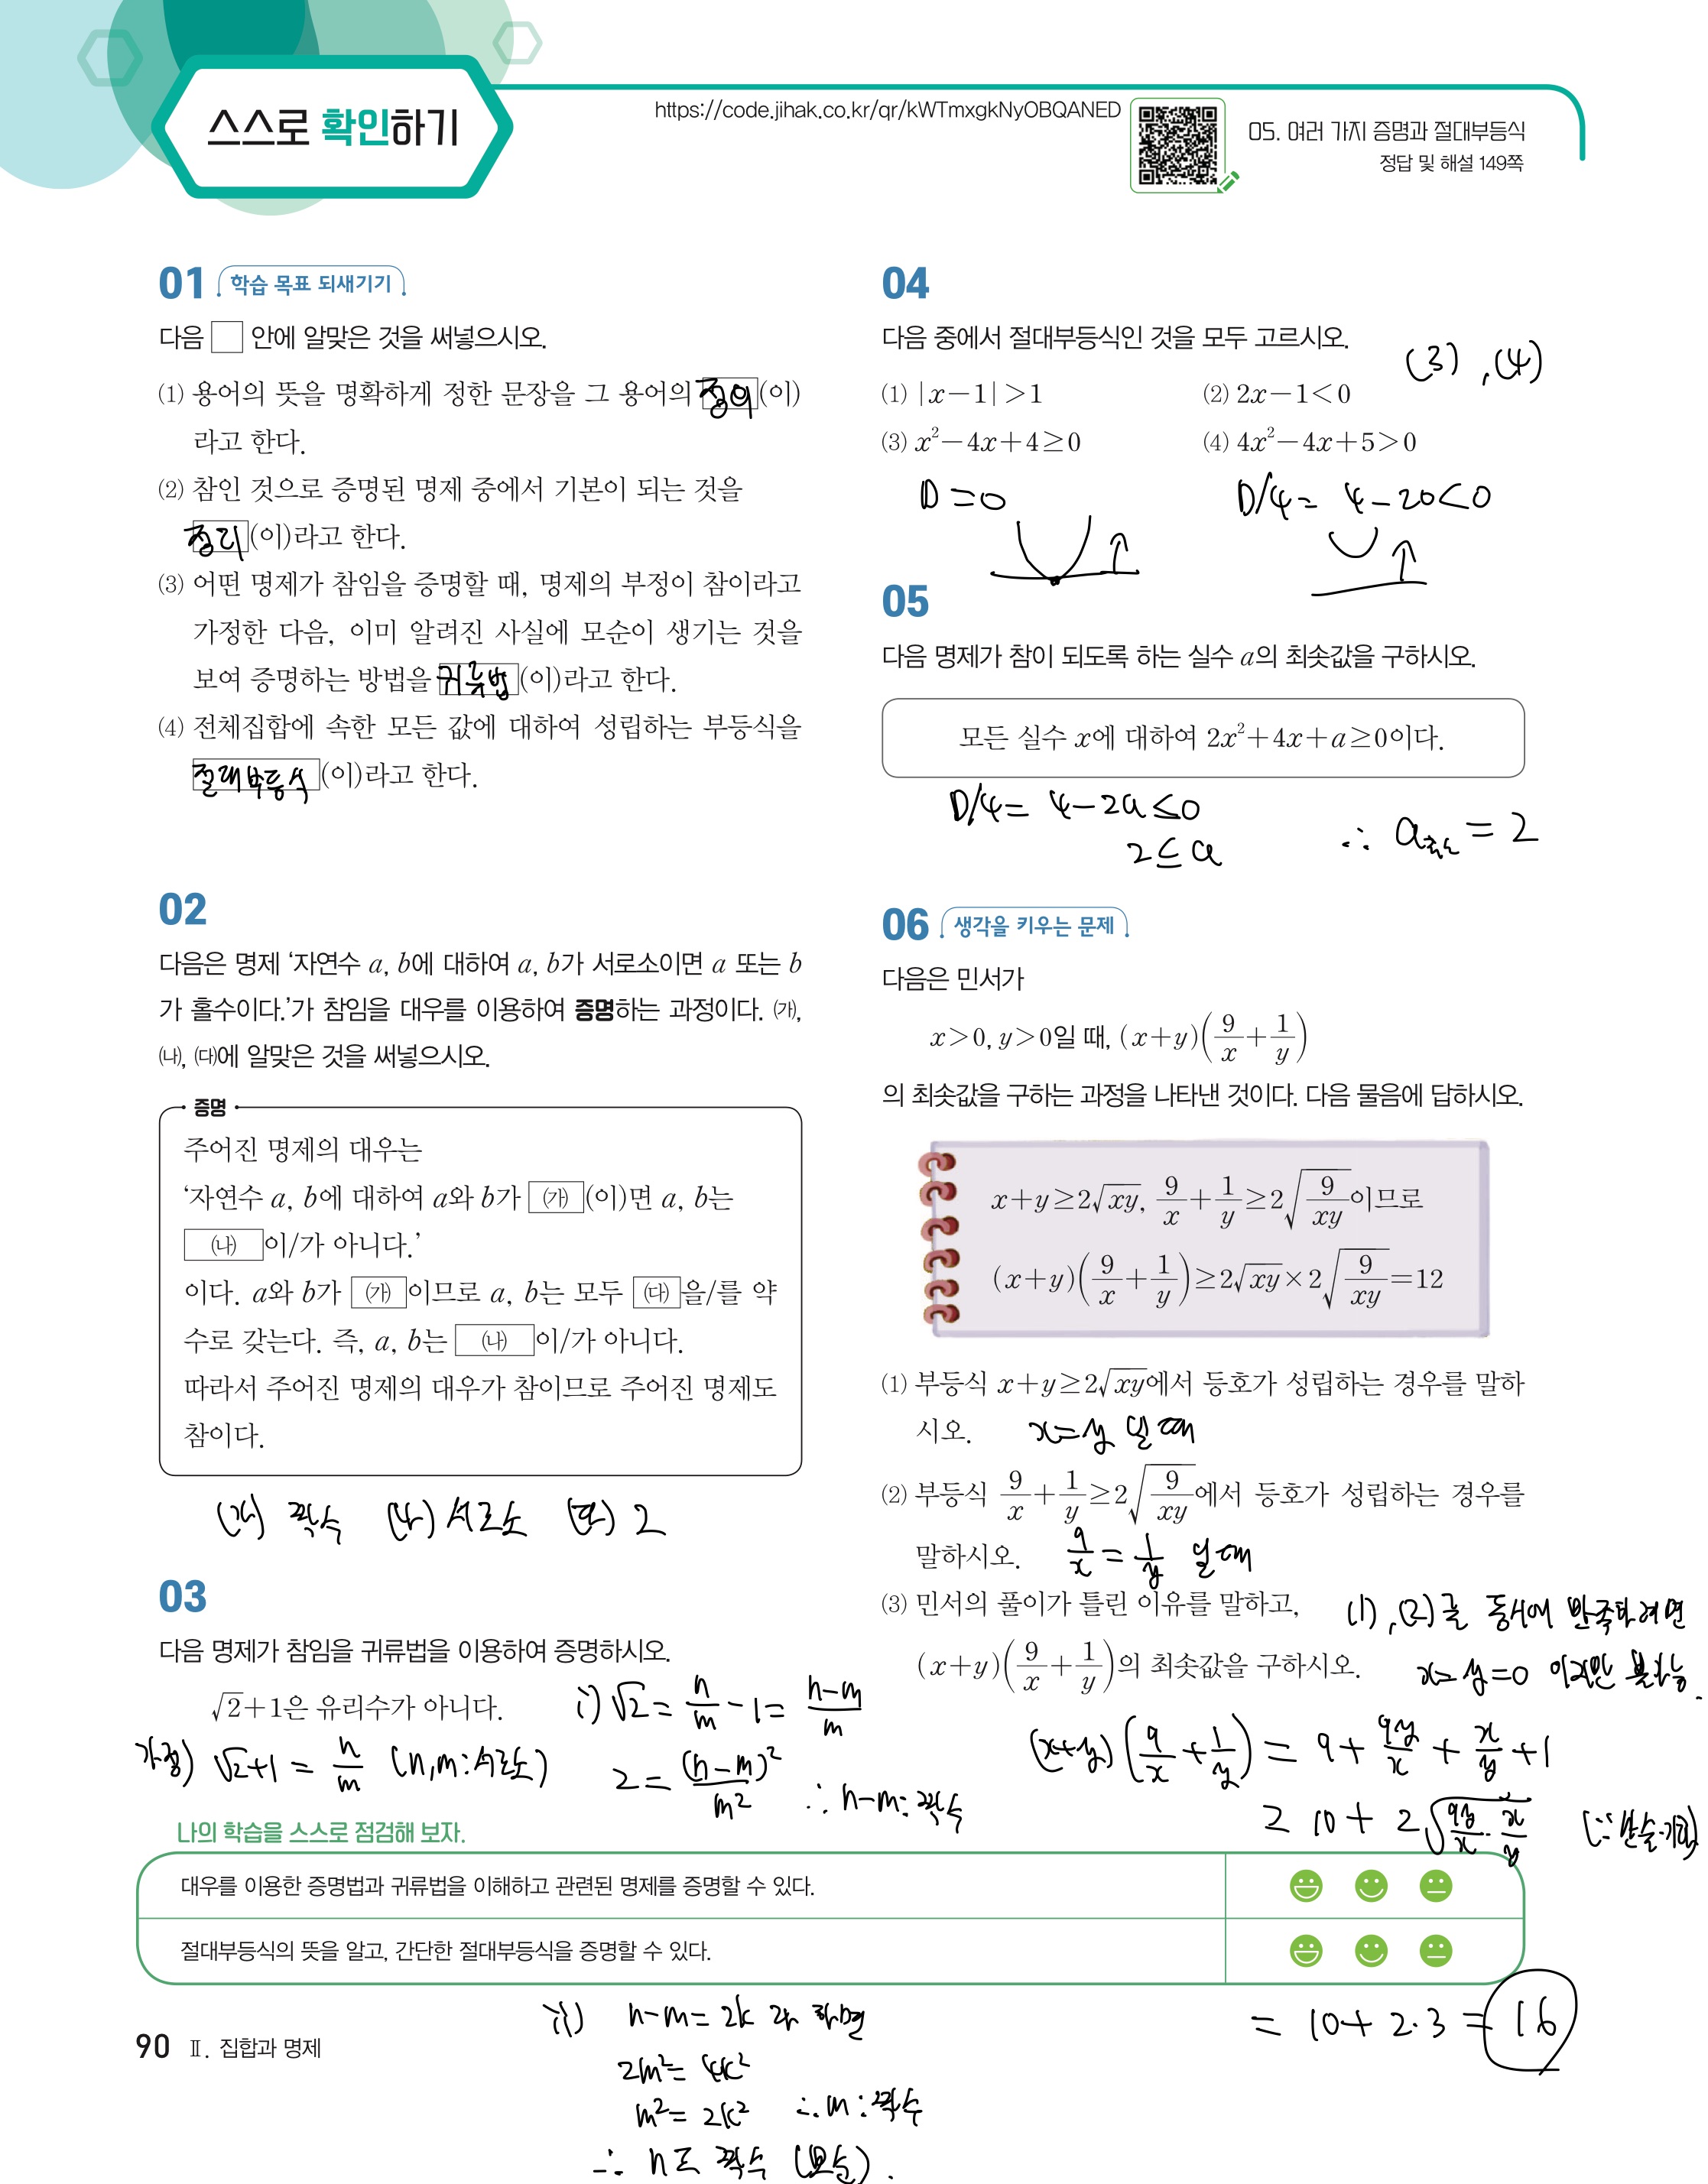 스스로 확인하기
https://code.jihak.co.kr/qr/kWTmxgkNyOBQANED
05. 여러 가지 증명과 절대부등식
정답 및 해설 149쪽
01 학습 목표 되새기기
다음 □ 안에 알맞은 것을 써넣으시오.
⑴ 용어의 뜻을 명확하게 정한 문장을 그 용어의 정의(이)
라고 한다.
⑵ 참인 것으로 증명된 명제 중에서 기본이 되는 것을
정리(이)라고 한다.
⑶ 어떤 명제가 참임을 증명할 때, 명제의 부정이 참이라고
가정한 다음, 이미 알려진 사실에 모순이 생기는 것을
보여 증명하는 방법을 귀류법(이)라고 한다.
⑷ 전체집합에 속한 모든 값에 대하여 성립하는 부등식을
절대부등식(이)라고 한다.
02
다음은 명제 ‘자연수 a, b에 대하여 a, b가 서로소이면 a 또는 b
가 홀수이다.’가 참임을 대우를 이용하여 증명하는 과정이다. ㈎,
㈏, ㈐에 알맞은 것을 써넣으시오.
증명
주어진 명제의 대우는
‘자연수 a, b에 대하여 a와 b가 ㈎ (이)면 a, b는
㈏ 이/가 아니다.’
이다. a와 b가 ㈎ 이므로 a, b는 모두 ㈐ 을/를 약
수로 갖는다. 즉, a, b는 ㈏ 이/가 아니다.
따라서 주어진 명제의 대우가 참이므로 주어진 명제도
참이다.
(가) 짝수 (나) 서로소 (다) 2
03
다음 명제가 참임을 귀류법을 이용하여 증명하시오.
√2+1은 유리수가 아니다.
가정) √2+1 = n/m (n,m:서로소)
i) √2 = n/m - 1 = (n-m)/m
2 = (n-m)²/m² ∴ n-m: 짝수
ii) n-m=2k 라 하면
2m²=4k²
m²=2k² ∴ m: 짝수
∴ n도 짝수 (모순).
04
다음 중에서 절대부등식인 것을 모두 고르시오.
(3), (4)
⑴ |x-1|>1 ⑵ 2x-1<0
⑶ x²-4x+4≥0 ⑷ 4x²-4x+5>0
D=0 D/4= 4-20<0
05
다음 명제가 참이 되도록 하는 실수 a의 최솟값을 구하시오.
모든 실수 x에 대하여 2x²+4x+a≥0이다.
D/4= 4-2a≤0
2≤a ∴ a최소=2
06 생각을 키우는 문제
다음은 민서가
x>0, y>0일 때, (x+y)(9/x+1/y)
의 최솟값을 구하는 과정을 나타낸 것이다. 다음 물음에 답하시오.
x+y≥2√xy, 9/x+1/y≥2√(9/xy)이므로
(x+y)(9/x+1/y)≥2√xy×2√(9/xy)=12
⑴ 부등식 x+y≥2√xy에서 등호가 성립하는 경우를 말하
시오. x=y 일 때
⑵ 부등식 9/x+1/y≥2√(9/xy)에서 등호가 성립하는 경우를
말하시오. 9/x=1/y 일 때
⑶ 민서의 풀이가 틀린 이유를 말하고,
(x+y)(9/x+1/y)의 최솟값을 구하시오.
(1),(2)를 동시에 만족하려면
x=y=0 이지만 불가능.
(x+y)(9/x+1/y) = 9+9y/x+x/y+1
≥ 10+2√(9y/x·x/y) (∵산술·기하)
= 10+2·3=16
나의 학습을 스스로 점검해 보자.
대우를 이용한 증명법과 귀류법을 이해하고 관련된 명제를 증명할 수 있다.
절대부등식의 뜻을 알고, 간단한 절대부등식을 증명할 수 있다.
90 Ⅱ. 집합과 명제